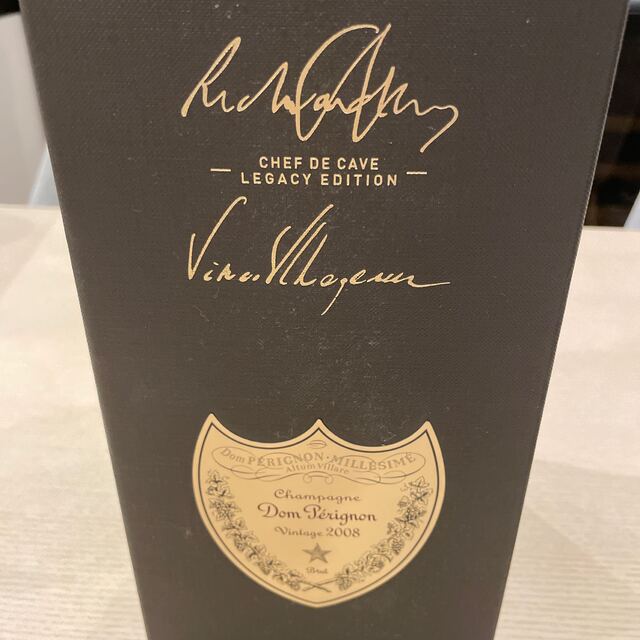 Richard Geoffroy
CHEF DE CAVE
LEGACY EDITION
Vincent Chaperon
Dom PÉRIGNON·MILLÉSIMÉ
Altum Villare
Champagne
Dom Pérignon
Vintage 2008
Brut